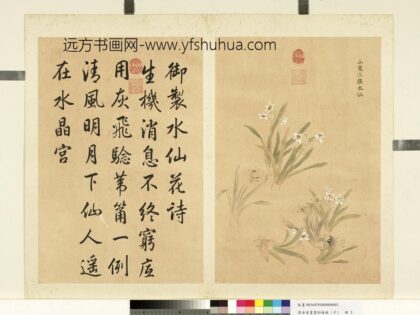 远方书画网-www.yfshuhua.com
御製水仙花詩
生機消息不終窮应
用灰飛驗葦筩一例
清風明月下仙人遥
在水晶宮
小寒三候水仙